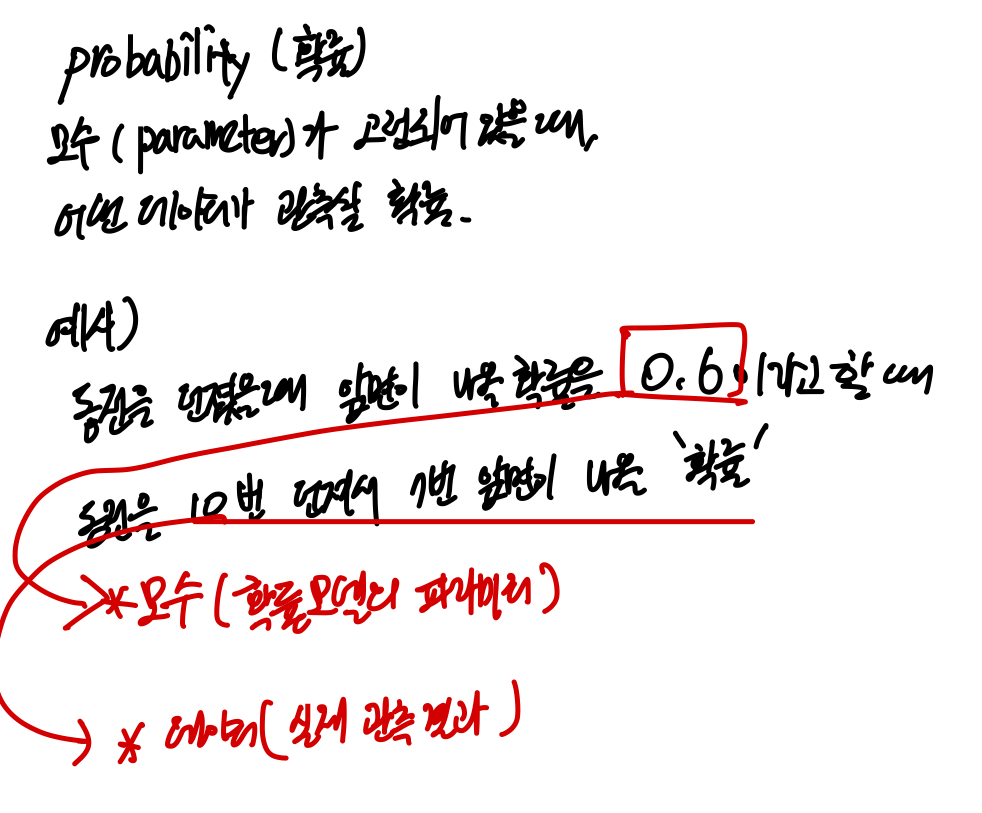 probability (확률)
모수 (parameter)가 고정되어 있을 때,
어떤 데이터가 관측될 확률.
예시)
동전을 던졌을때 앞면이 나올 확률을 0.6이라고 할 때
동전을 10번 던져서 7번 앞면이 나올 '확률'
* 모수 (확률모델의 파라미터)
* 데이터 (실제 관측 결과)